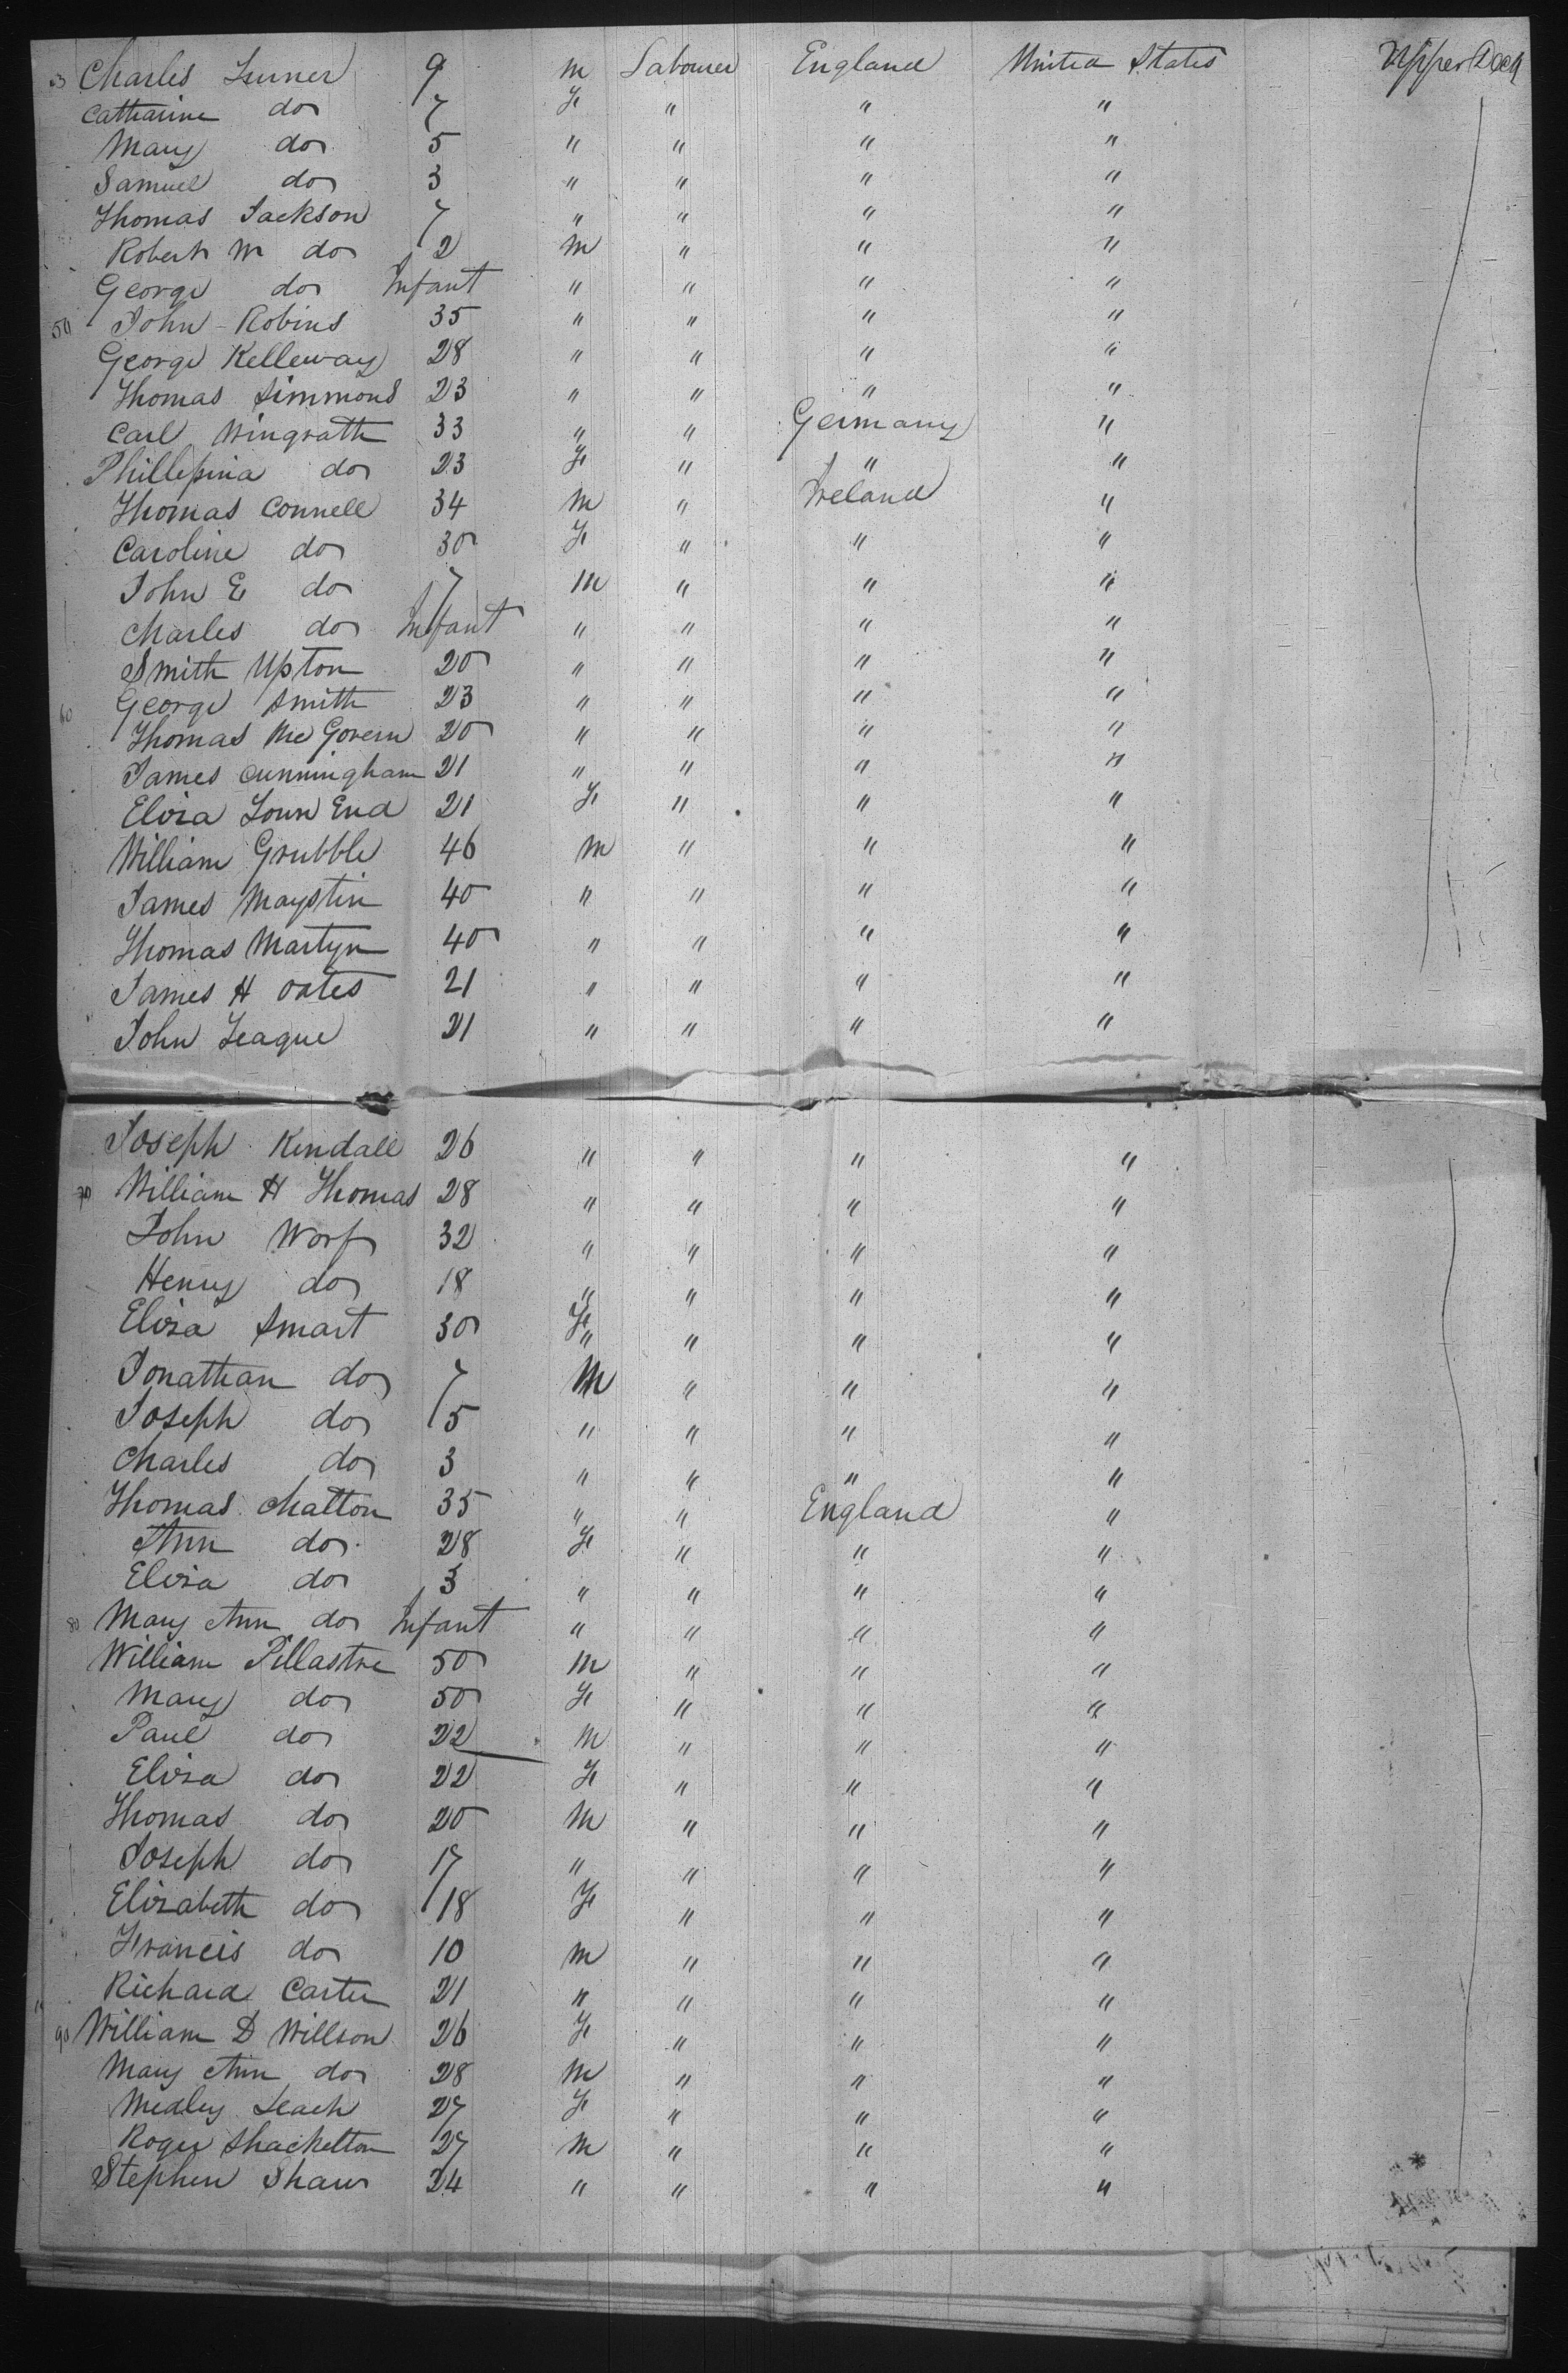 Charles Turner 9 m Labourer England United States Upper Deck
Catharine do 7 F " " "
Mary do 5 " " " "
Samuel do 3 " " " "
Thomas Jackson 7 " " " "
Robert M do 2 m " " "
George do Infant " " " "
50 John Robins 35 " " " "
George Kelleway 28 " " " "
Thomas Simmons 23 " " " "
Carl Wingrath 33 " " Germany "
Phillepina do 23 F " " "
Thomas Connell 34 m " Ireland "
Caroline do 30 F " " "
John E do 7 m " " "
Charles do Infant " " " "
Smith Upton 20 " " " "
60 George Smith 23 " " " "
Thomas McGovern 20 " " " "
James Cunningham 21 " " " "
Eliza Town End 21 F " " "
William Grubble 46 m " " "
James Maystin 40 " " " "
Thomas Martyn 40 " " " "
James H Oates 21 " " " "
John Teague 21 " " " "
Joseph Kendall 26 " " " "
70 William H Thomas 28 " " " "
John Worf 32 " " " "
Henry do 18 " " " "
Eliza Smart 30 F " " " "
Jonathan do 7 m " " "
Joseph do 5 " " " "
Charles do 3 " " " "
Thomas Chatton 35 " " England "
Ann do 28 F " " "
Eliza do 3 " " " "
80 Mary Ann do Infant " " " "
William Pillastre 50 m " " "
Mary do 50 F " " "
Paul do 22 m " " "
Eliza do 22 F " " "
Thomas do 20 m " " "
Joseph do 17 " " " "
Elizabeth do 18 F " " "
Francis do 10 m " " "
Richard Carter 21 " " " "
90 William D Willson 26 F " " "
Mary Ann do 28 m " " "
Medley Leach 27 F " " "
Roger Shackelton 27 m " " "
Stephen Shaw 24 " " " "